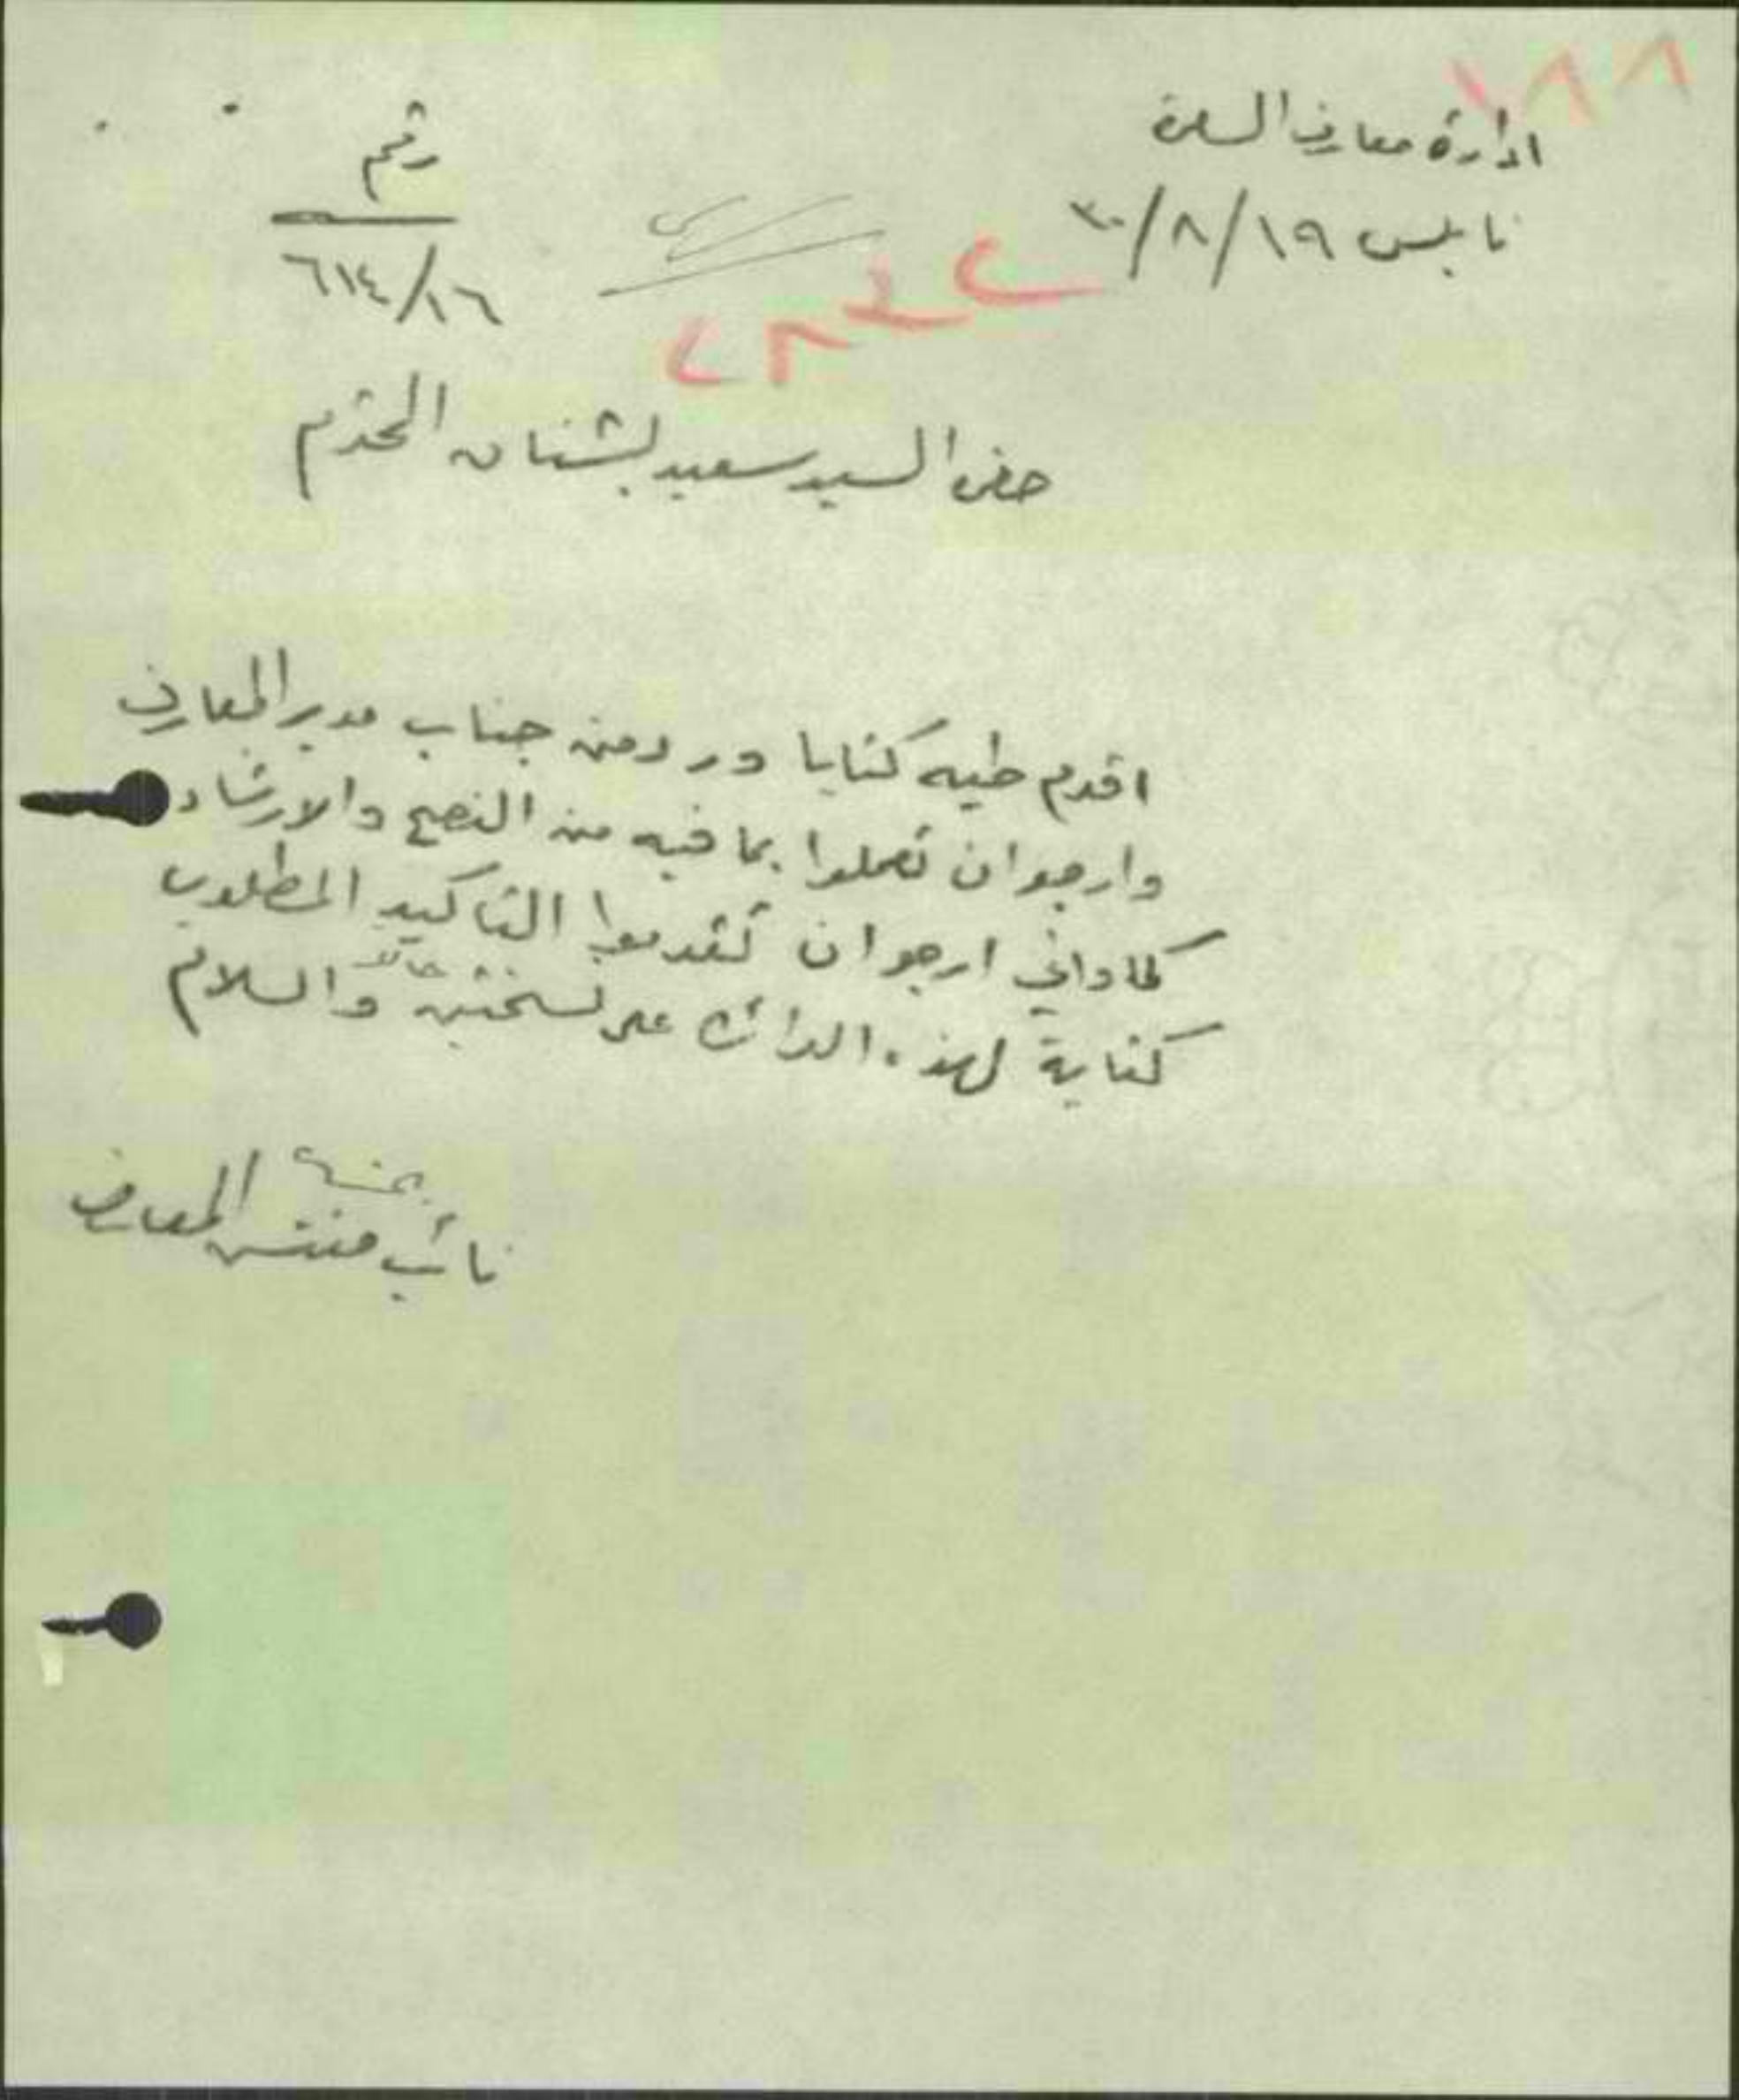 ١٨٨
ادارة معارف السامرة
نابلس ١٩/٨/٣٠
رقم
٦١٤/١٦
سري
حضرة السيد سعيد بشناق المحترم
اقدم طيه كتابا ورد من جناب مدير المعارف
وارجو ان تعملوا بما فيه من النصح والارشاد
كما واني ارجو ان تقدموا التأكيد المطلوب
كتابة لهذه الدائرة على نسختين حالا والسلام
نائب مفتش المعارف